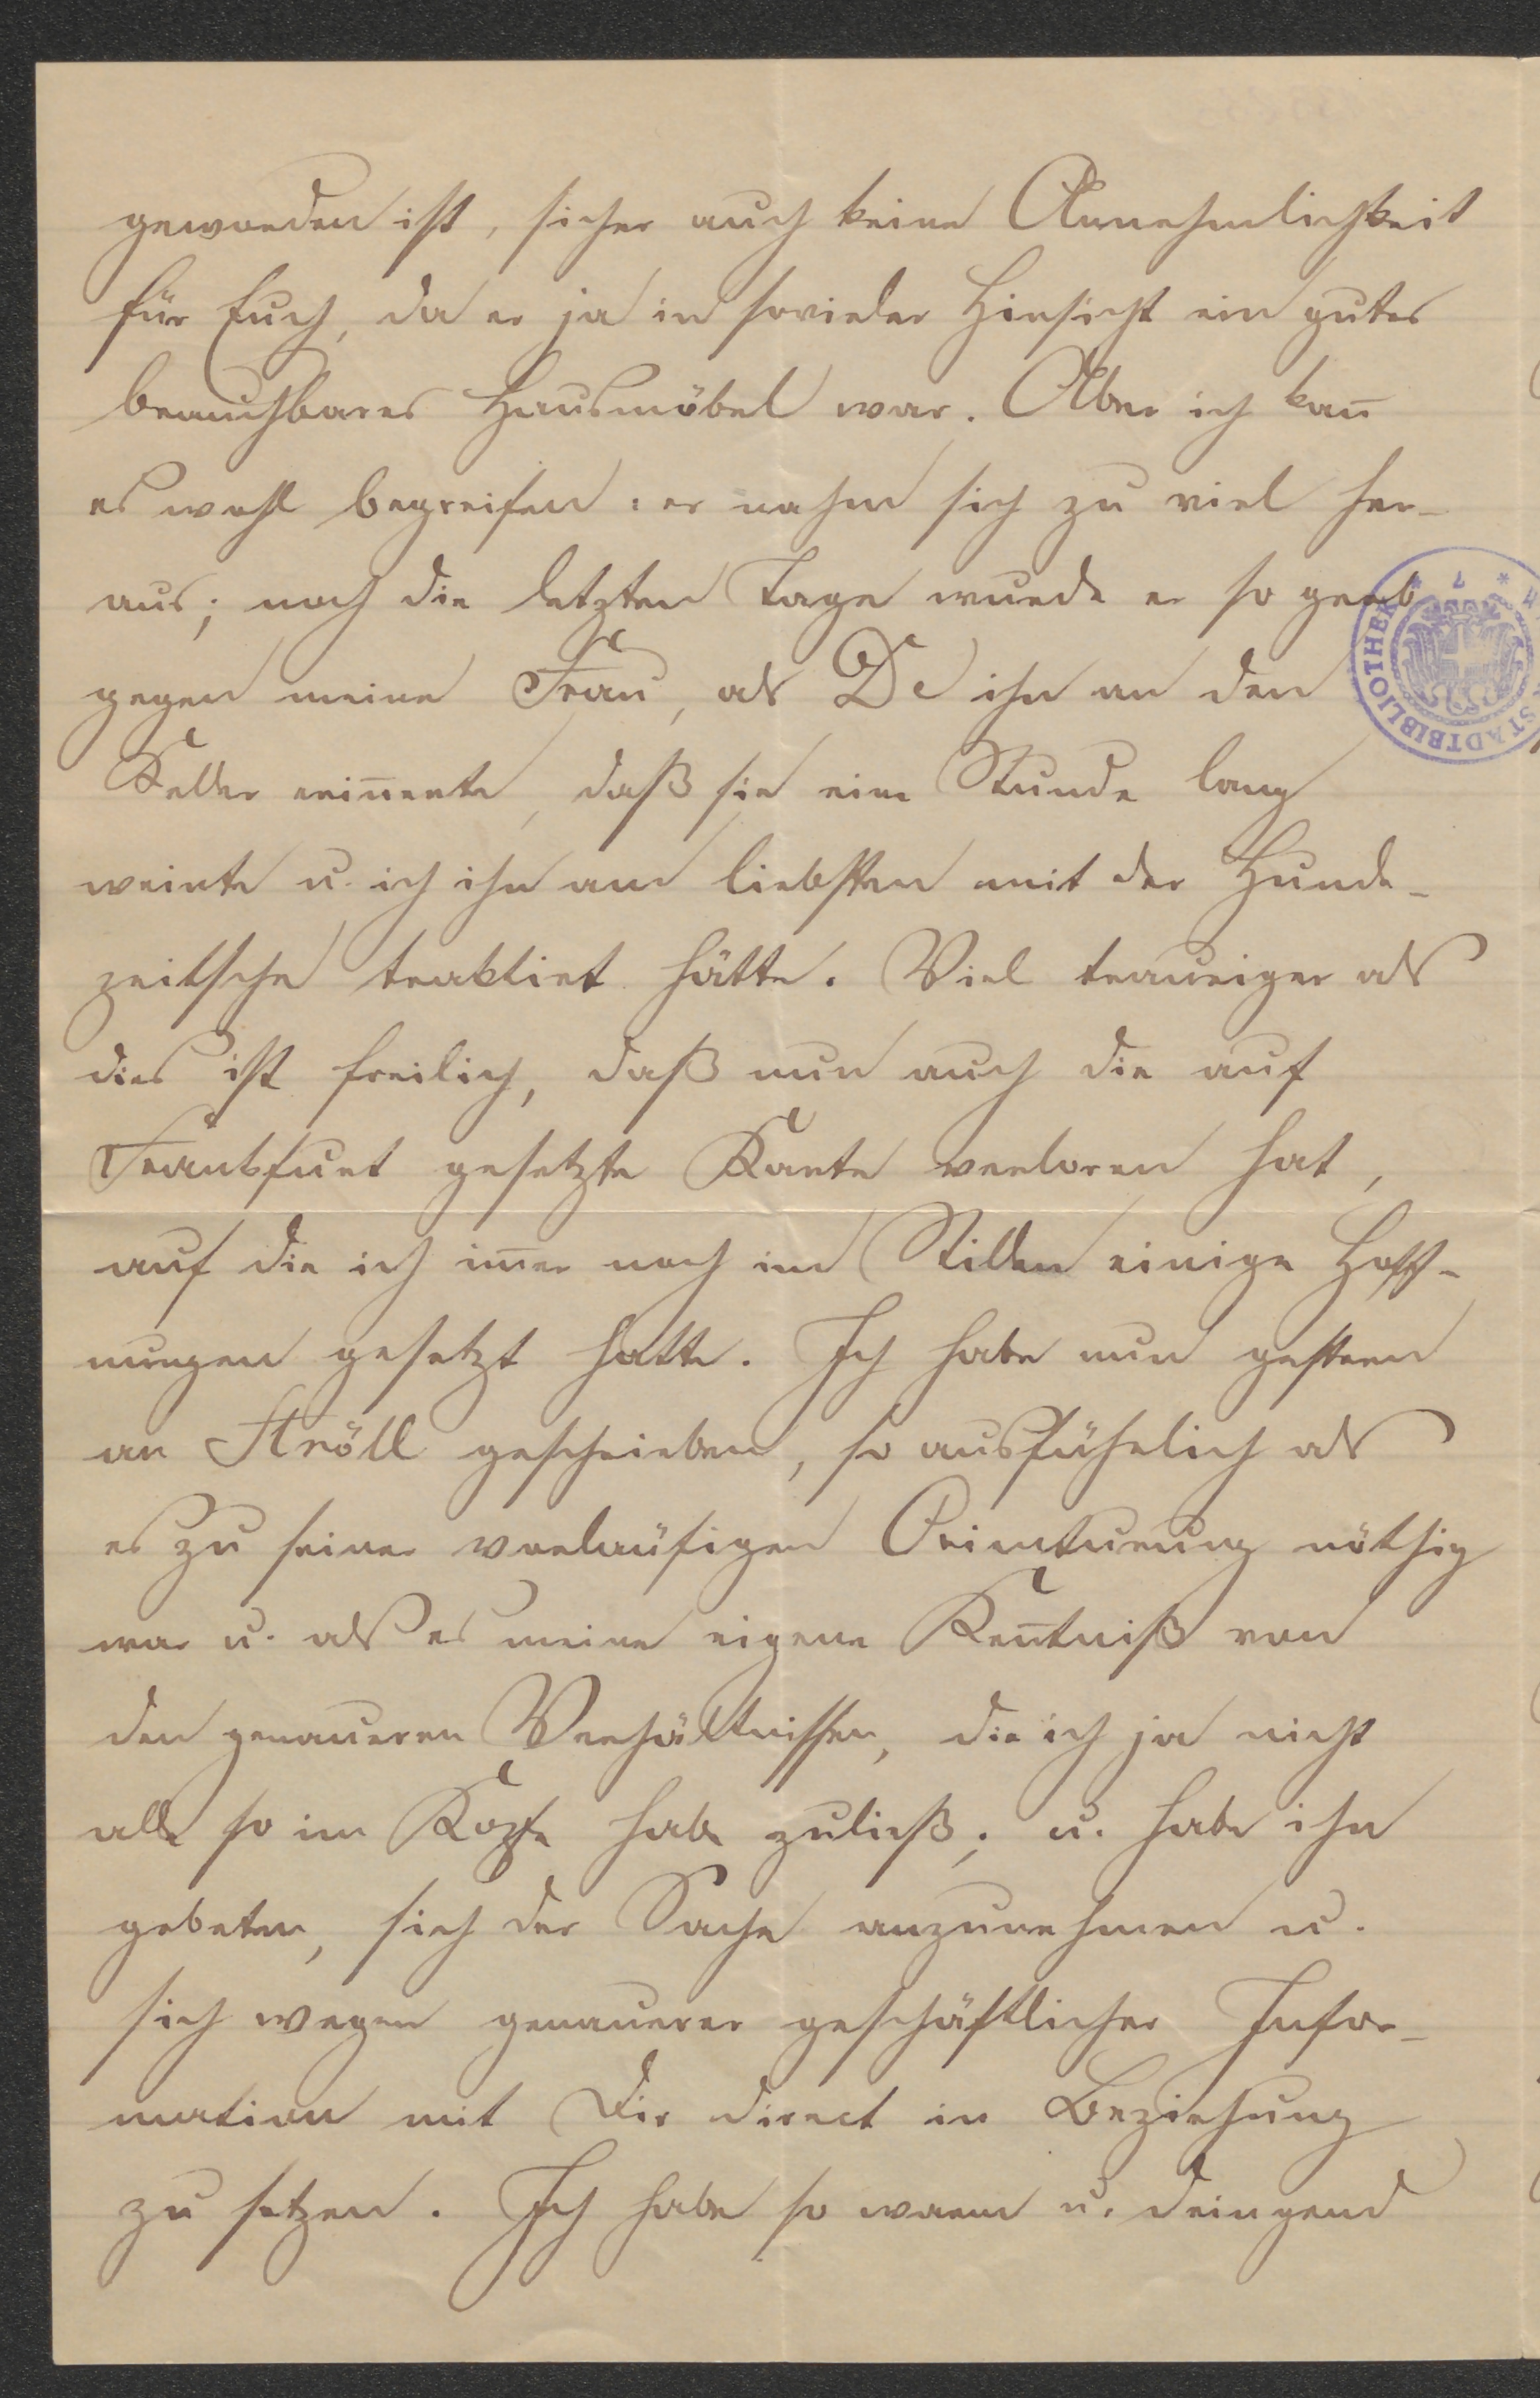 geworden ist, sicher auch keine Annehmlichkeit
für Euch, da er ja in sovieler Hinsicht ein gutes
brauchbares Hausmöbel war. Aber ich kan̅
es wohl begreifen: er nahm sich zu viel her-
aus; noch die letzten Tage wurde er so grob
gegen meine Frau, als D ihn an den
Keller erin̅erte, daß sie eine Stunde lang
weinte u. ich ihn am liebsten mit der Hunde-
peitsche traktirt hätte. Viel trauriger als
dies ist freilich, daß nun auch die auf
Frankfurt gesetzte Karte verloren hat,
auf die ich im̅er noch im Stillen einige Hoff-
nungen gesetzt hatte. Ich habe nun gestern
an Ströll geschrieben, so ausführlich als
es zu seiner vorläufigen Orientirung nöthig
war u. als es meine eigene Ken̅tniß von
den genaueren Verhältnissen, die ich ja nicht
alle so im Kopfe habe zuließ; u. habe ihn
gebeten, sich der Sache anzunehmen u.
sich wegen genauerer geschäftlicher Infor-
mation mit Dir direct in Beziehung
zu setzen. Ich habe so warm u. dringend
STADTBIBLIOTHEK